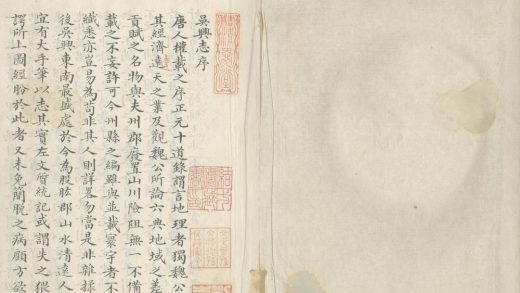 吳興志序
唐人權載之序正元十道錄謂言地理者獨魏公
其經濟遠天之業及觀魏公所論六典地域之差
貢賦之名物與夫州郡廢置山川險阻無一不備
載之不妄許可今州縣之編雖與並載寰宇者不
纖悉亦豈易為苟非其人則詳畧勿當是非雜揉
後吳興東南最盛處於今為股肱郡山水清遠人
宜有大手筆以志其實左文質統記或謂失之猥
諤所上圖經朌於此者又未免簡脫之病顧方欲